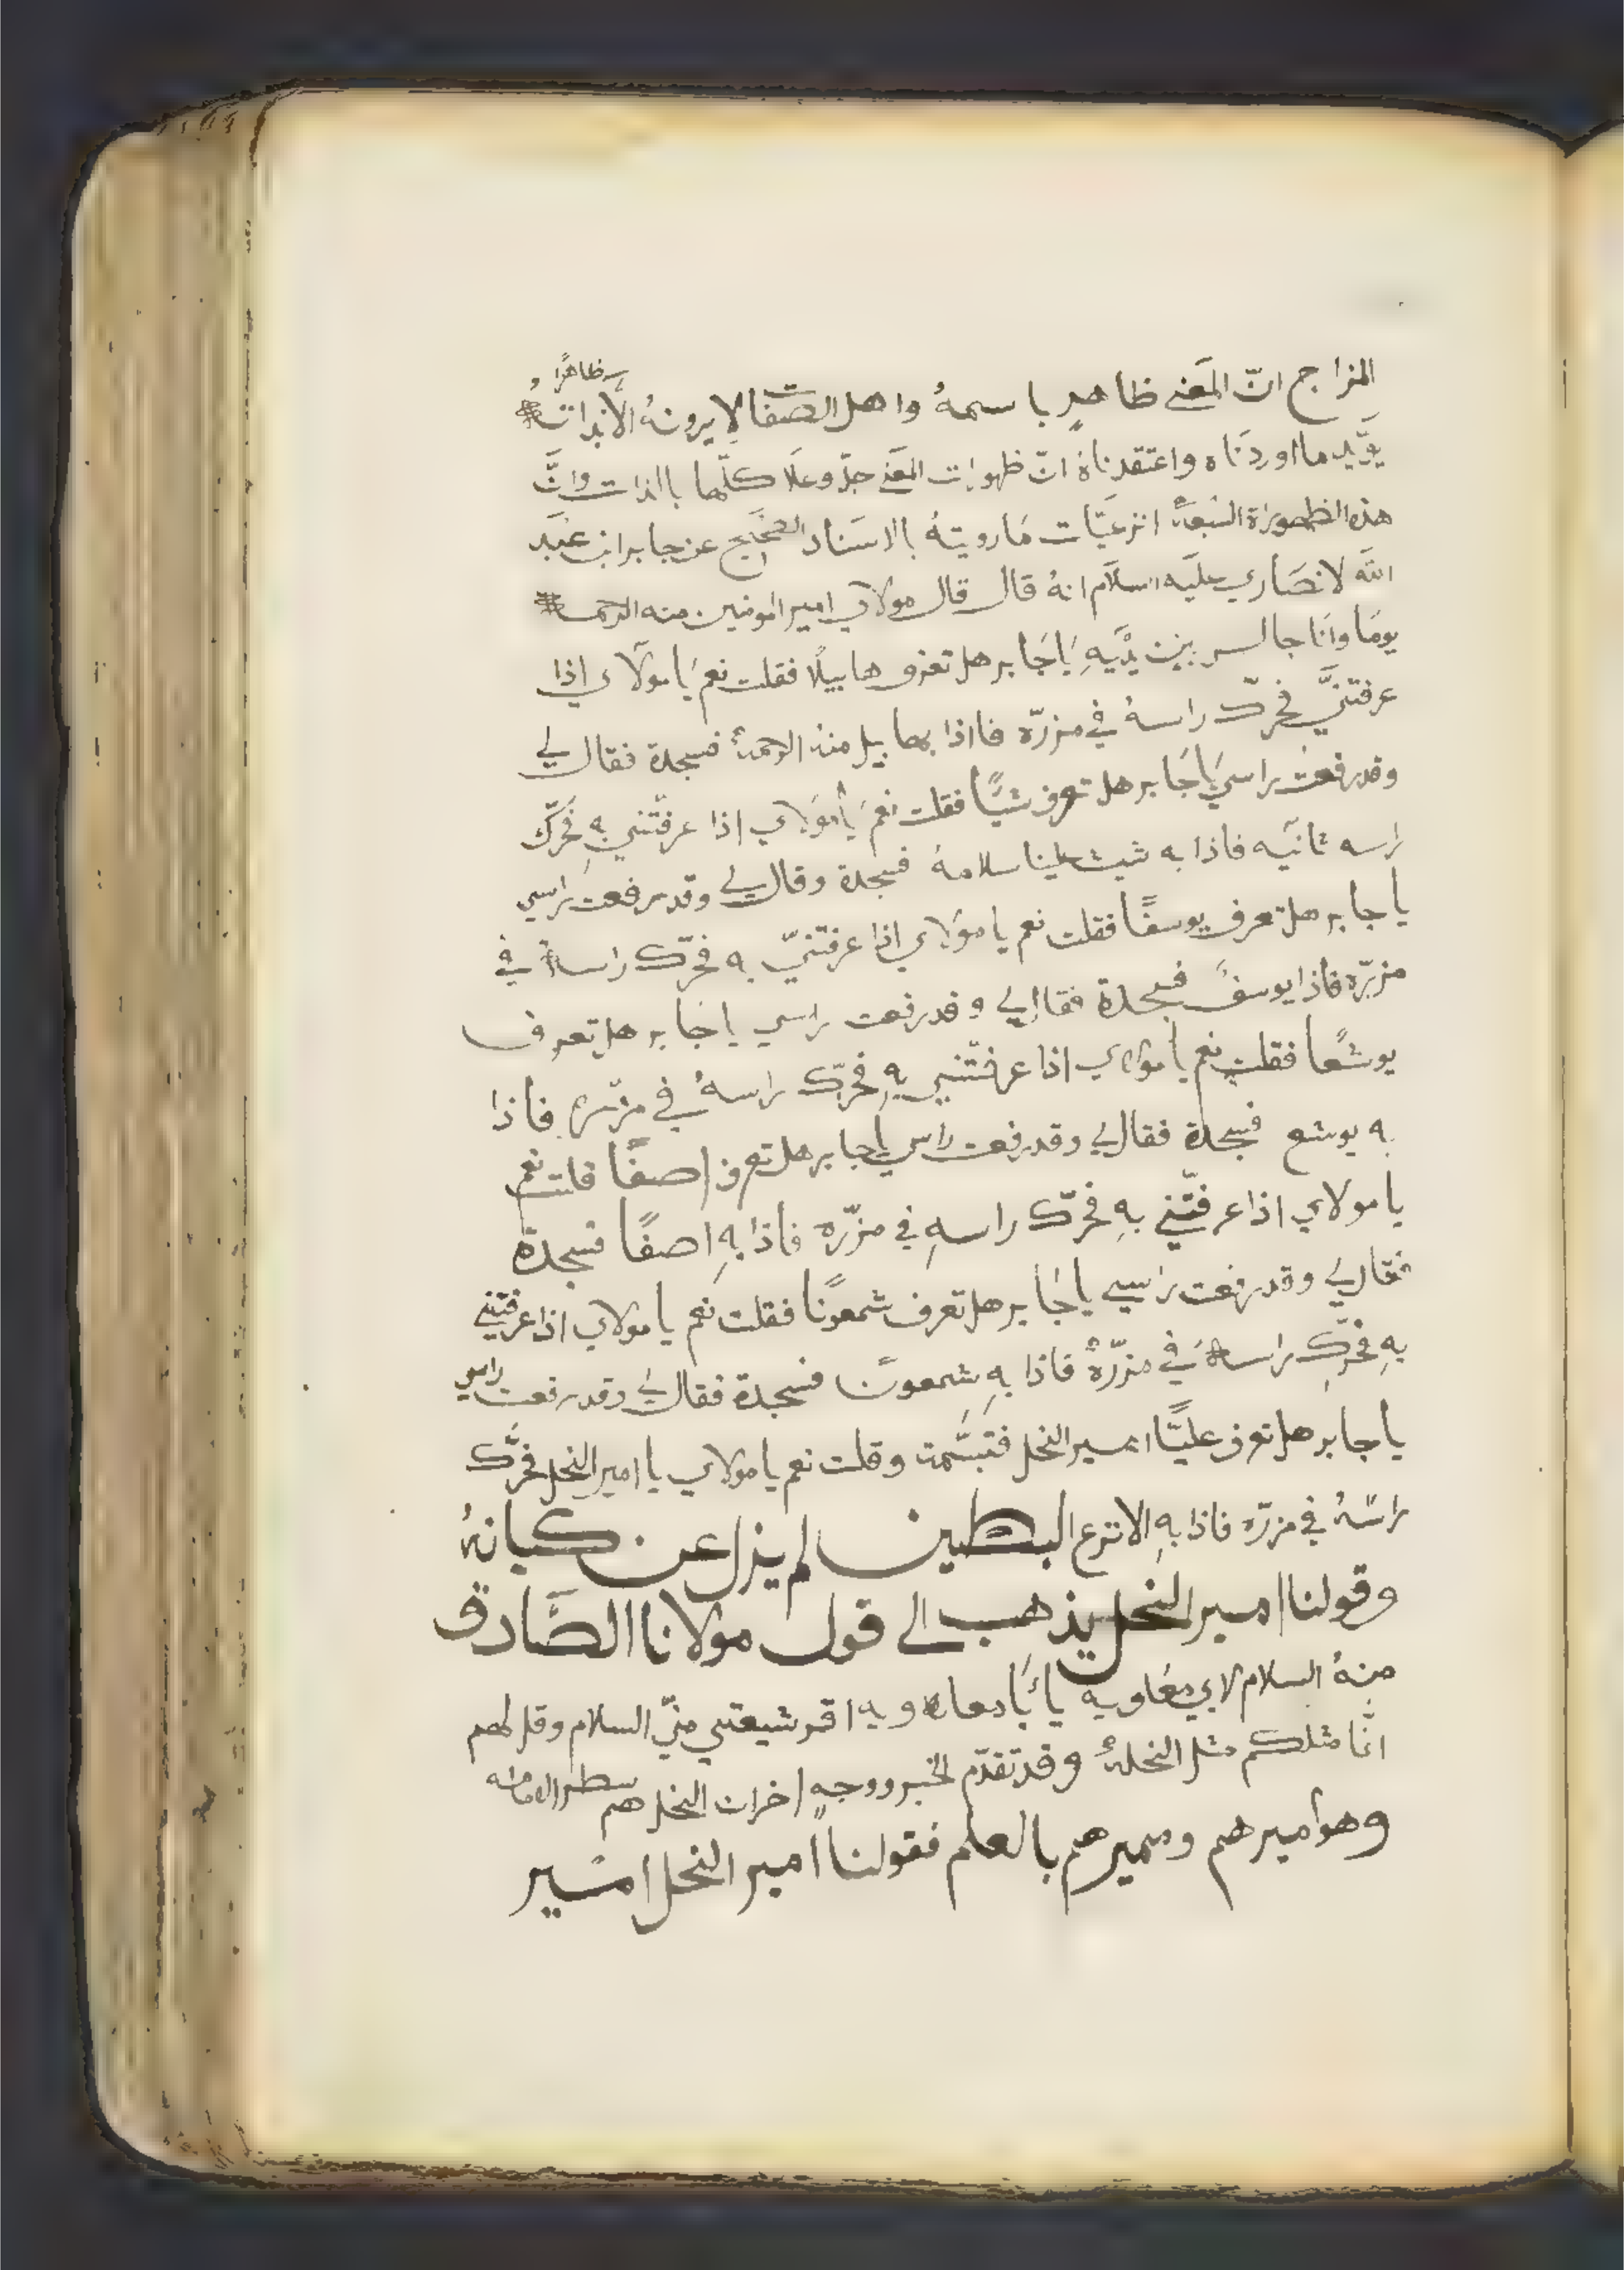 ظاهرًا و
المزاج انّ المَعَني ظاهرٍ باسمهُ واهل الصفات لا يرونهُ الا بذاته
يوَيّد ما اوردَناه واعتقدناهُ انّ ظهورات المَعَني جلّ وعلا كلّها بالذات وانَّ
هذه الظهوراة السَبعةُ انزعيَّات مَا رويتهُ بالاسَناد الصَحَيح عن جابر ابن عَبَد
اللَه لانصَاري عليَه اسلاَم انهُ قال قال مولاي امير المومنين منه الرحمه
يومَا وانَا جالس بين يدَّيهِ يَاجَابر هل تعرف هابيلًا فقلت نعم يَا مولاَي اذا
عرفتنيَّ فحرّك راسهُ في مزرّه فااذا بهابيل منهُ الرحمةُ فسجدة فقال لي
وقد رفعت راسي يَاجَابر هل تعرف شيثًا فقلت نعمَ يَا مَولاي اذا عرفتّني بهِ فحَرّك
راسه ثانيَه فاذا به شيث علينا سلامهُ فسجدة وقال لي وقد رفعت راسي
ياجابر هل تعرف يوسفًا فقلت نعم يا مَولاي اذا عرفتنيّ به فحرّك راسهُ في
مزرّه فاذا يوسفً فسجدة فقاالي وقد رفعت راسي ياجَابر هل تعرف
يوشعًا فقلت نعم يا مولاي اذا عرفتّني بهِ فحرّك راسهُ في مزّره فاذا
به يوشع فسجدة فقال لي وقد رفعت راسي ياجابر هل تعرف اصفًا قلت نعم
يا مولاي اذا عرفتّني بهِ فحرّك راسهِ في مزّره فاذا بهِ اصفًا فسجدة
فقال لي وقد رفعت راسي ياجَابر هل تعرف شمعونًا فقلت نعم يا مولاي اذا عرفتني
بهِ فحرّك راسهُ في مزرّهُ فاذا بهِ شمعونً فسجدة فقال لي وقد رفعت راسي
ياجابر هل تعرف عليًّا امير النحل فتبسَّمت وقلت نعم يا مولاي يا امير النحل فحرَّك
راسَهُ في مزرّه فاذا بهِ الانزع البطين لم يزل عن كيانهُ
وقولنا امير النحل يذهب الى قول مولانا الصَّادق
منهُ السلام لابي مَعَاويه يا اَبَا معاويه اقر شيعتي منّي السلام وقل لهم
انّما مثلكم مثل النحلهُ وقد تقدّم الخبر ووجهٍ اخران النحل هم
وهو اميرهم ومميرهم بالعلم فقولنا امير النحل امَير